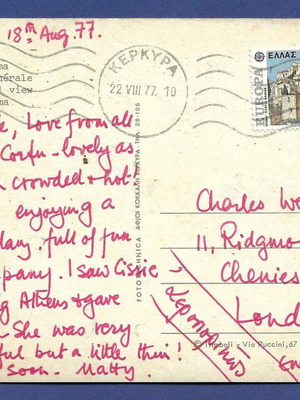 18th Aug. 77.
ma
nérale
l view
ma
ΚΕΡΚΥΡΑ
22 VIII 77. 19
ΕΛΛΑΣ
EUROPA
e, Love from all
Corfu - lovely as
crowded + hot
enjoying a
day, full of fun
pany. I saw Cissie
g Athens + gave
- She was very
ful but a little thin!
soon. Matty
FOTOTECHNICA ΑΦΙΟΙ ΚΟΚΚΑΛΗ ΚΕΡΚΥΡΑ - ΤΗΛ. 28-105
Charles We
11, Ridgmo
Chenies
Lond
Via Puccini, 67